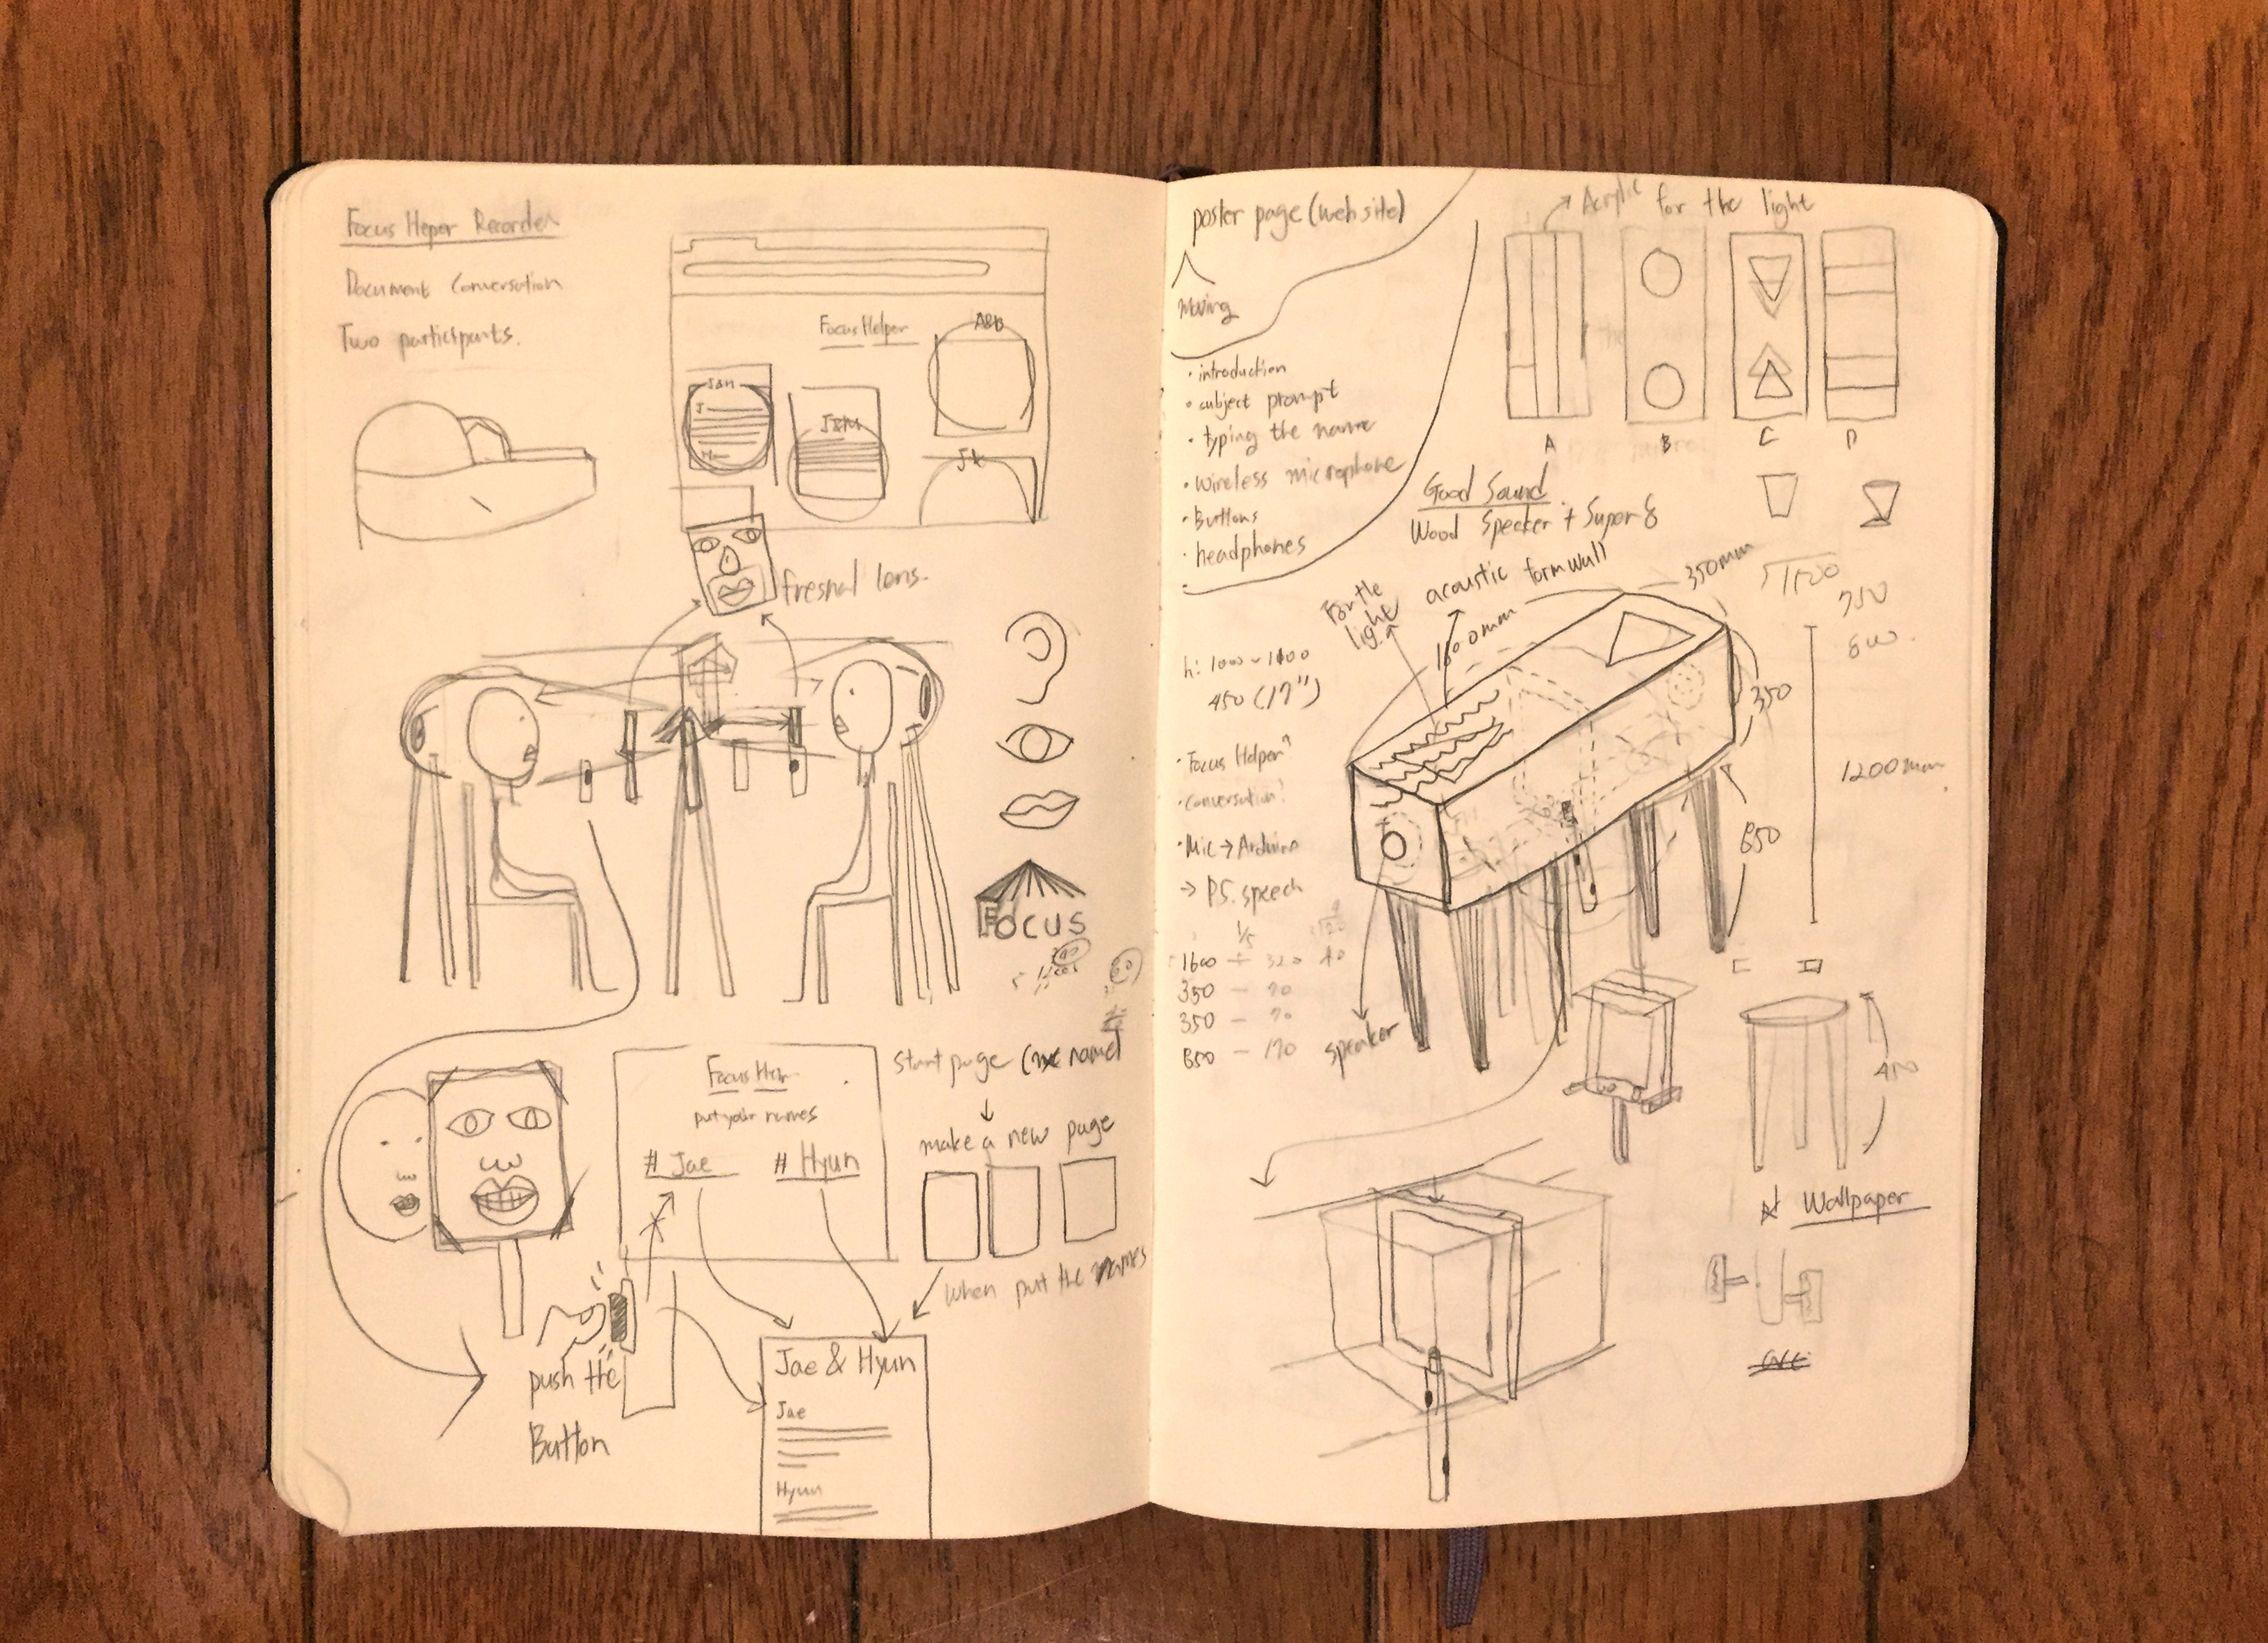 Focus Heper Recorder
Document Conversation
Two participants.
Focus Helper
A&B
J&H
J
H
J&M
J&K
fresnal lens.
FOCUS
Focus Hlpr
put your names
# Jae # Hyun
start page (name)
make a new page
when put the names
push the
Button
Jae & Hyun
Jae
Hyun
poster page (web site)
Moving
· introduction
· subject prompt
· typing the name
· wireless microphone
· Buttons
· headphones
Acrylic for the light
A B C D
Good Sound
Wood Speaker + Super 8
For the
light
acoustic form wall
1600mm
350mm
350
850
1200mm
750
600
h: 1000 ~ 1100
450 (17")
· Focus Helper?
· Conversation?
· Mic → Arduino
→ P5. speech
1/5
1600 ÷ 320 40
350 – 70
350 – 70
850 – 170
speaker
450
Wallpaper